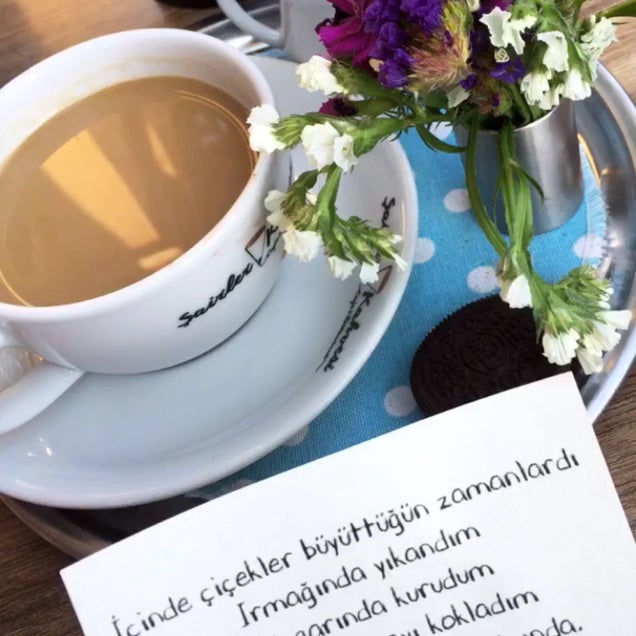 Şairler
Kahvesi
İçinde çiçekler büyüttüğün zamanlardı
Irmağında yıkandım
kurudum
kokladım